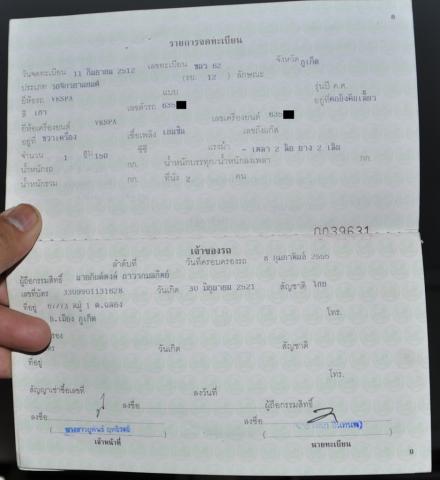 8
รายการจดทะเบียน
วันจดทะเบียน 11 กันยายน 2512 เลขทะเบียน ขลว 62 จังหวัด ภูเก็ต
ประเภท รถจักรยานยนต์ (รย. 12 ) ลักษณะ
ยี่ห้อรถ VESPA แบบ รุ่นปี ค.ศ.
สี เทา เลขตัวรถ 635 อยู่ที่
ยี่ห้อเครื่องยนต์ VESPA เลขเครื่องยนต์ 635
อยู่ที่ ขวาเครื่อง เชื้อเพลิง เบนซิน เลขถังแก๊ส
จำนวน 1 สูบ 150 ซีซี แรงม้า - เพลา 2 ล้อ ยาง 2 เส้น
น้ำหนักรถ กก. น้ำหนักบรรทุก/น้ำหนักลงเพลา กก.
น้ำหนักรวม กก. ที่นั่ง 2 คน
0039631
เจ้าของรถ
ลำดับที่ วันที่ครอบครองรถ 8 กุมภาพันธ์ 2555
ผู้ถือกรรมสิทธิ์
เลขที่บัตร 3309901131628 วันเกิด 30 มิถุนายน 2521 สัญชาติ ไทย
ที่อยู่ 67/73 หมู่ 1 ต.ฉลอง
อ.เมือง ภูเก็ต โทร.
วันเกิด สัญชาติ
ที่อยู่
โทร.
สัญญาเช่าซื้อเลขที่ ลงวันที่
ลงชื่อ ผู้ถือกรรมสิทธิ์
ลงชื่อ ลงชื่อ
เจ้าหน้าที่ นายทะเบียน